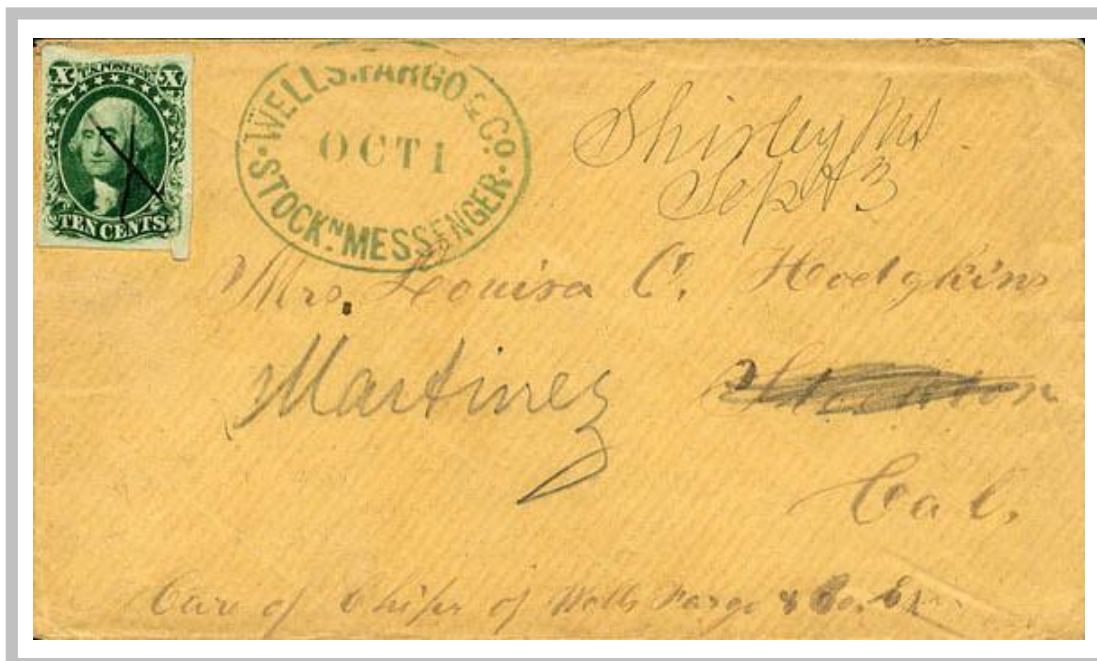 X U.S. POSTAGE X
TEN CENTS
WELLS, FARGO & CO.
OCT 1
STOCKN MESSENGER.
Shirley Ms
Sept 3
Mrs. Louisa C. Hodgkins
Martinez Stockton
Cal.
Care of of Wells Fargo & Co.